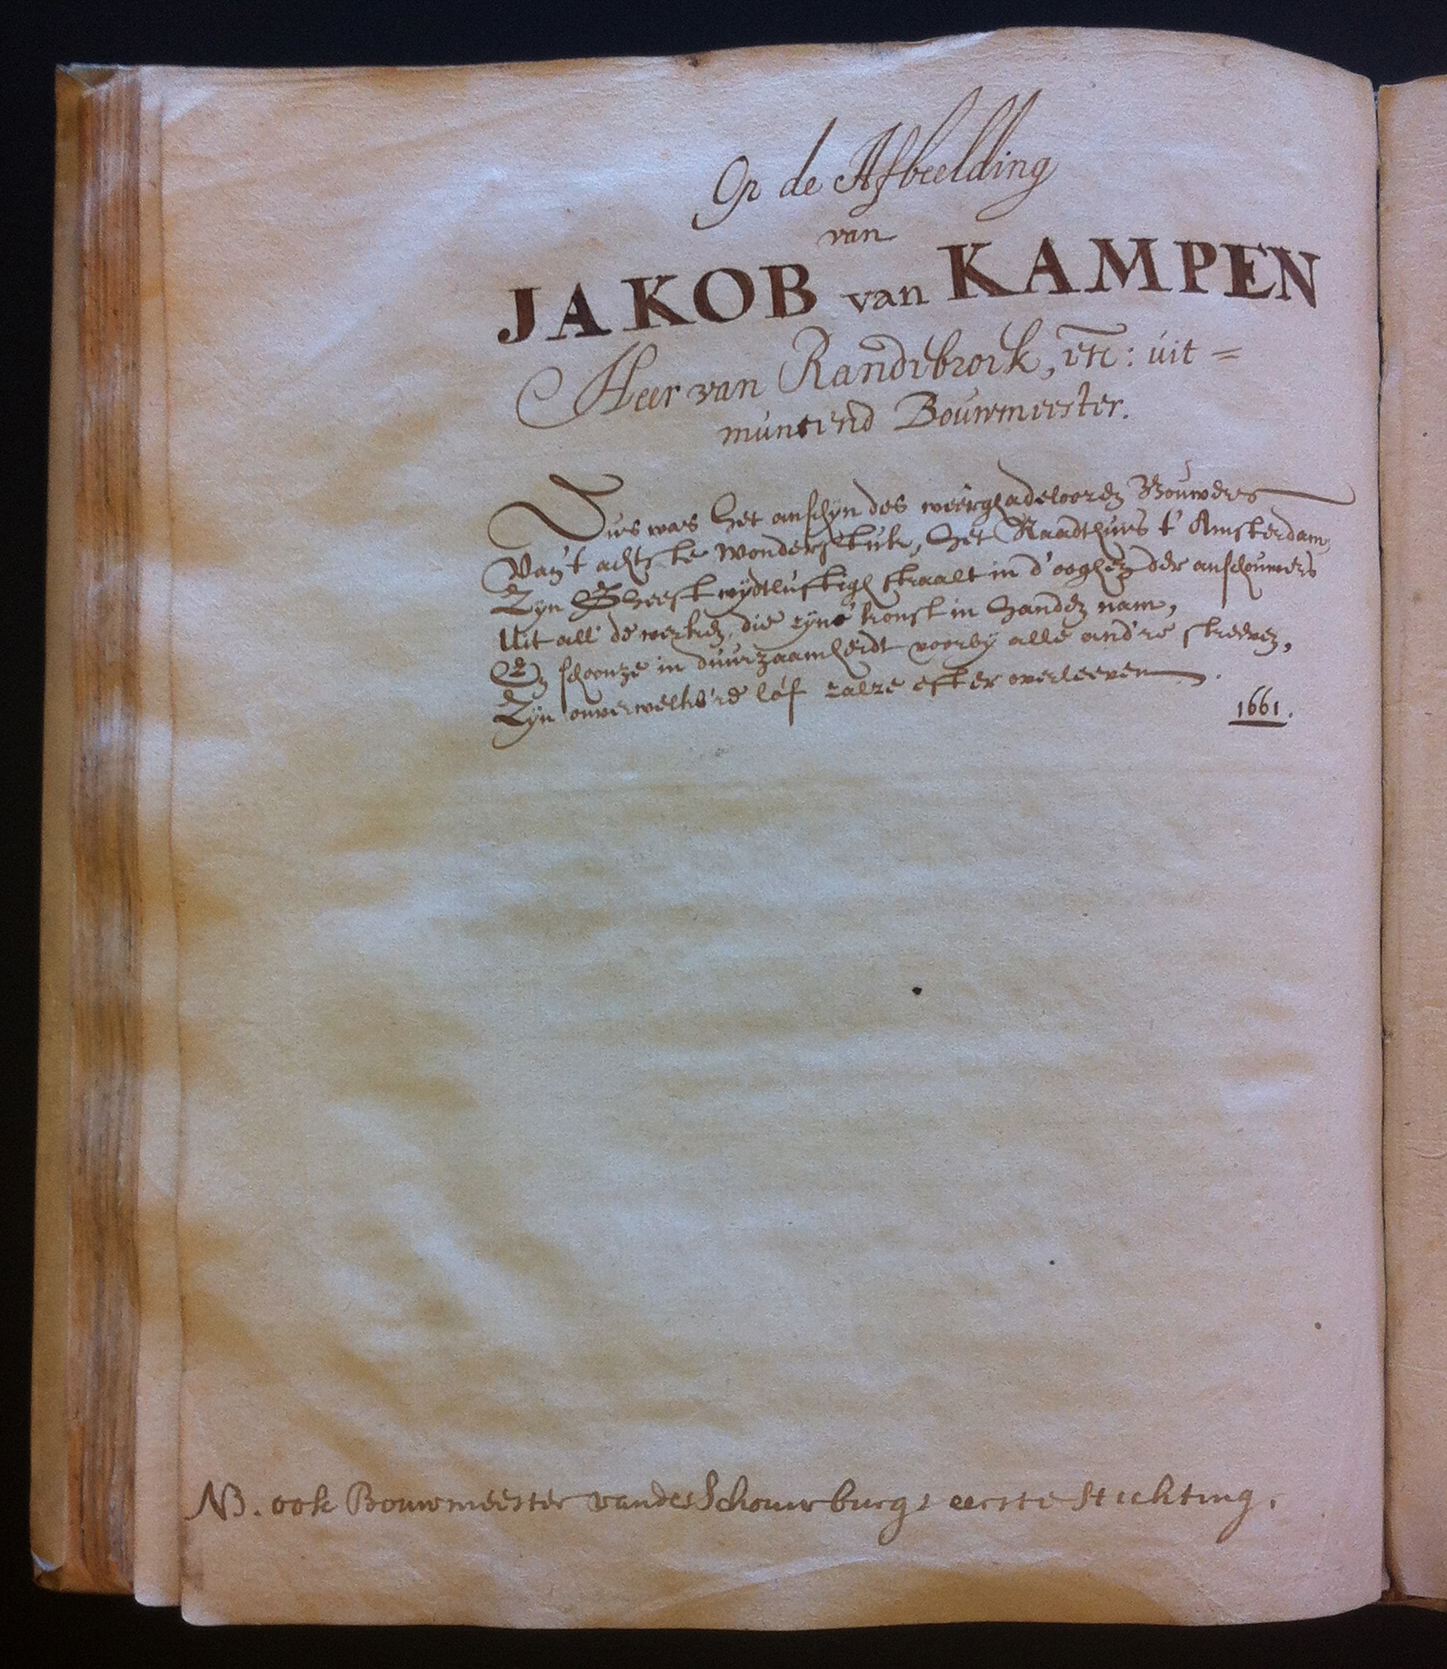 Op de Afbeelding
van
JAKOB van KAMPEN
Heer van Randebroek, etc: uit=
muntend Bouwmeester.
Dus was het anschyn des weêrghadeloozen Bouwers
Van 't achtste Wonderstuk, het Raadthuis t' Amsterdam,
Zyn Gheest wydtluftigh straalt in d' ooghen der anschouwers
Uit all' de werken, die zyne konst in handen nam,
En schoonze in duurzaamheidt voorby alle and're streeven,
Zyn onverwelkb're lof zalze efter overleeven.
1661.
NB. ook Bouwmeester vander Schouwburgs eerste Stichting.